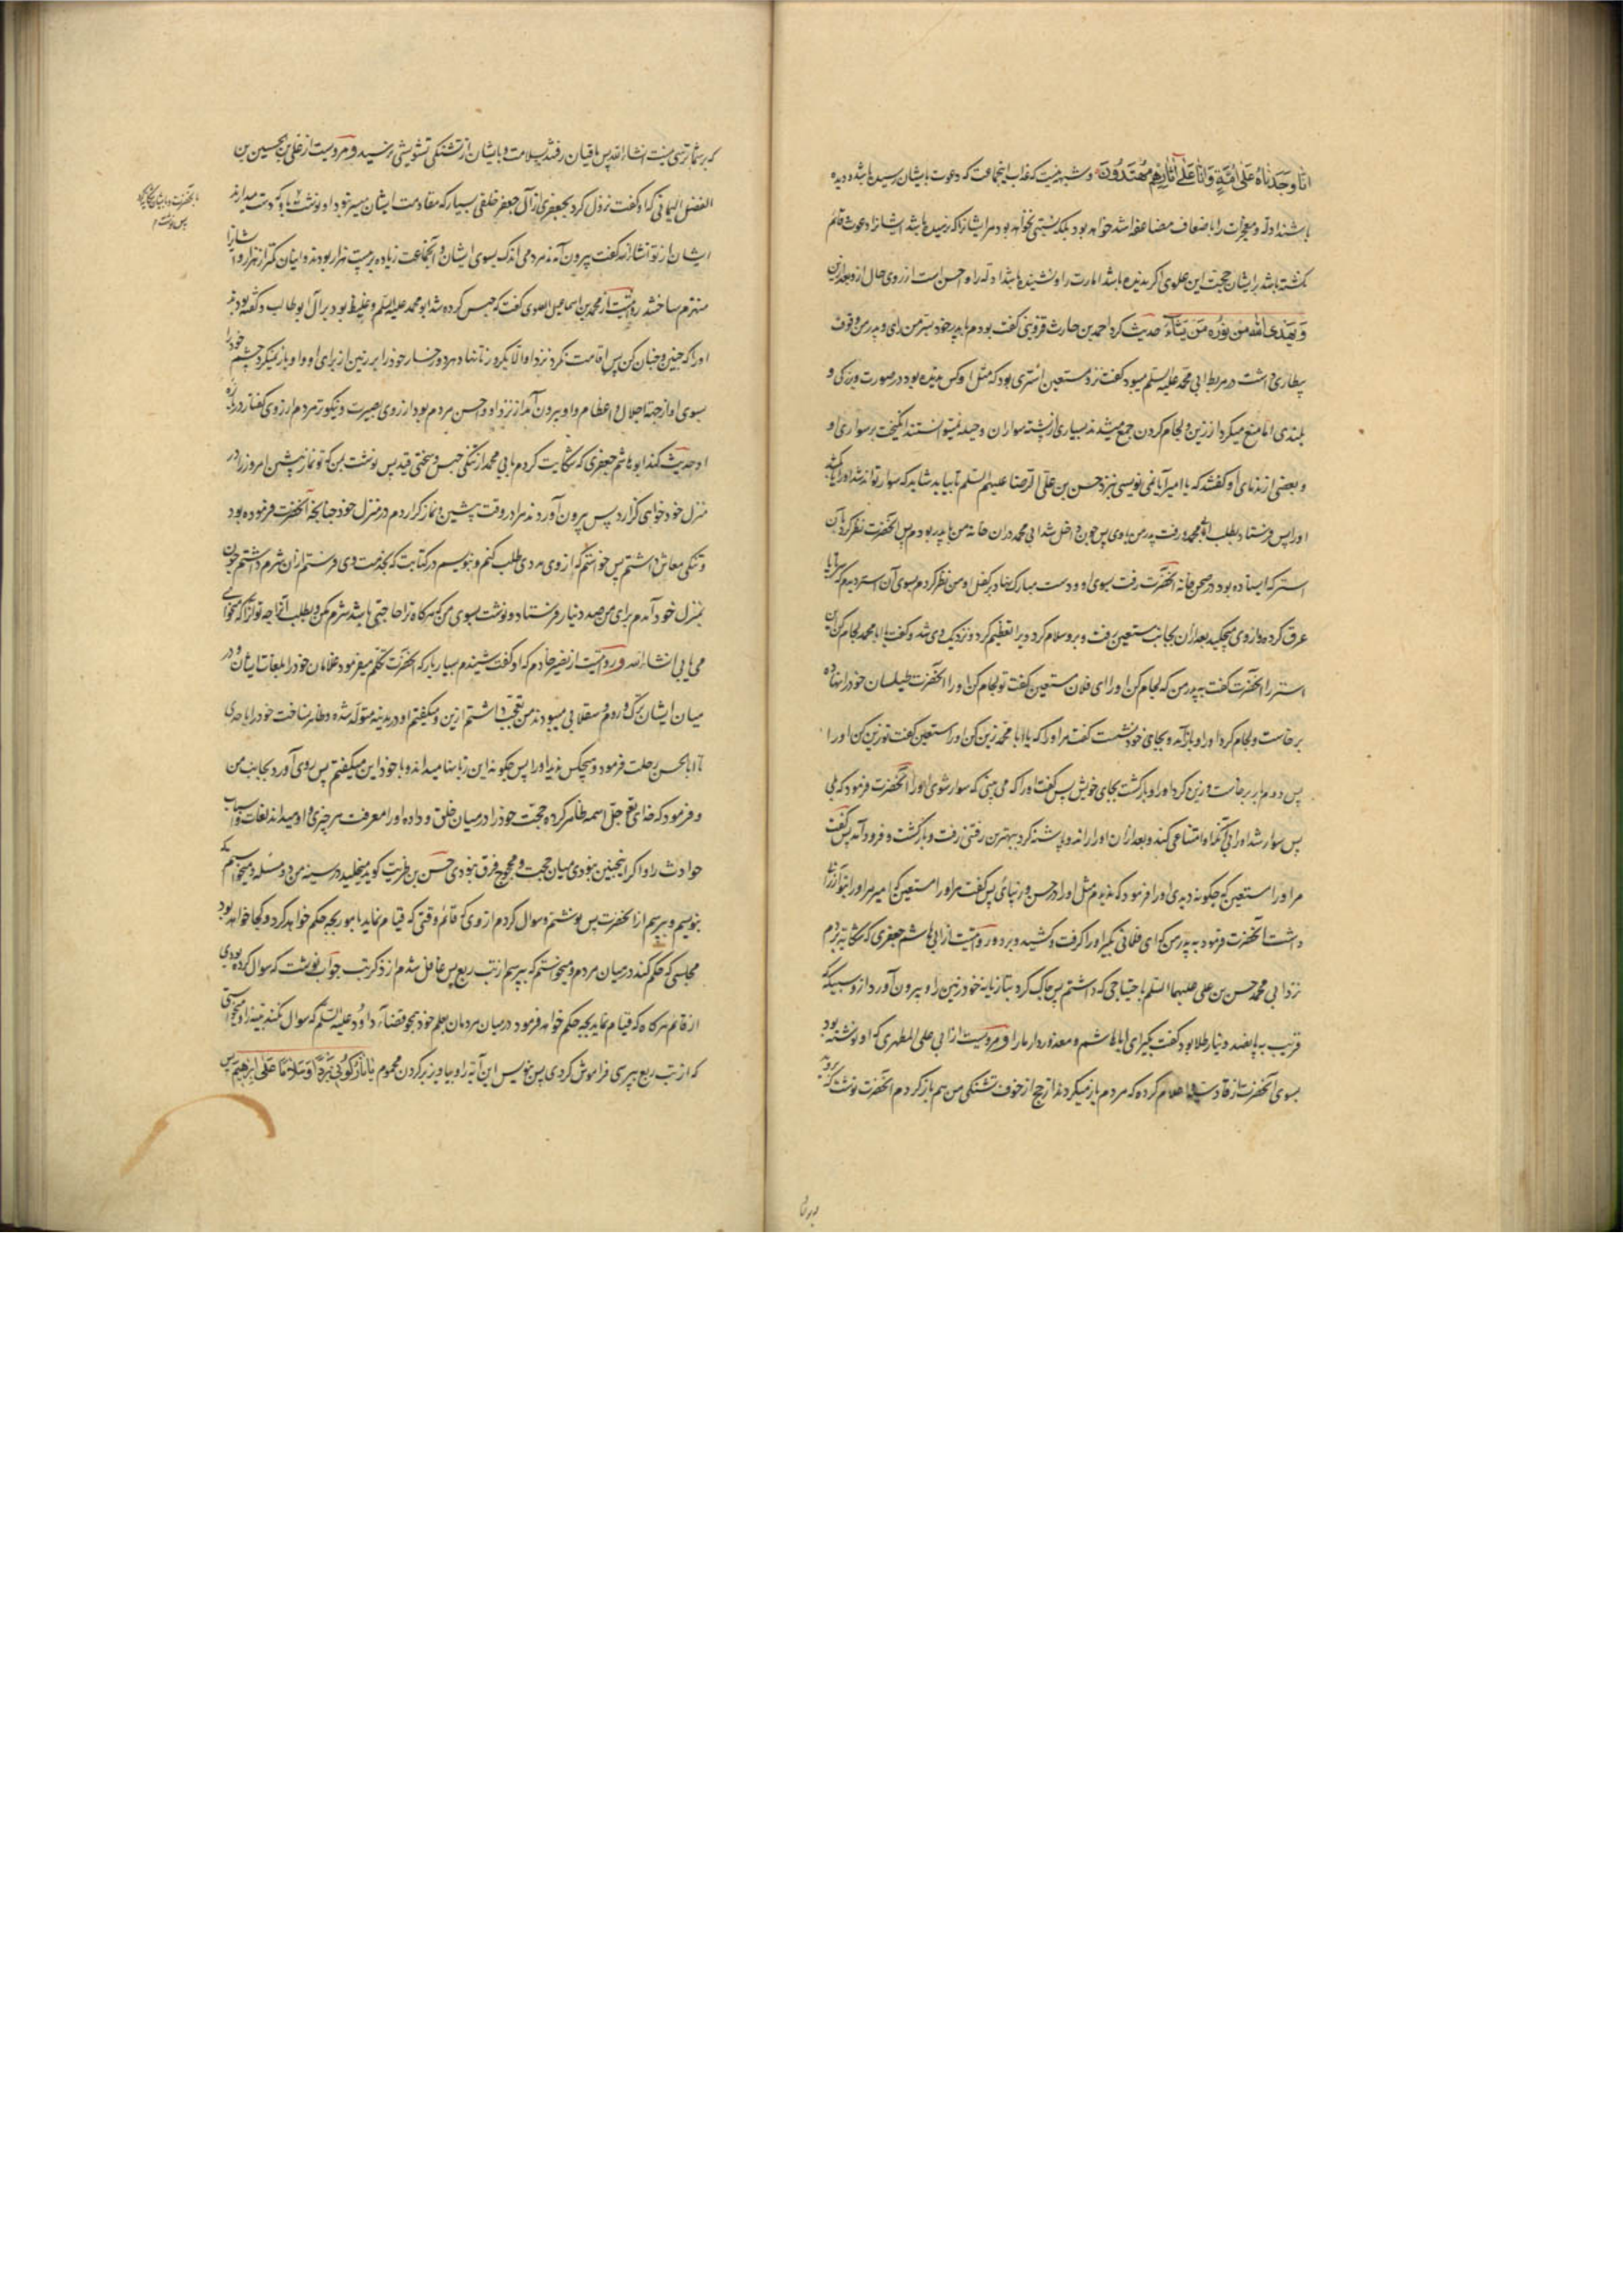 انا وجدناه علی امة و انا علی آثارهم مهتدون و شبهه نیست که عذاب اینجماعت که دعوت بایشان رسیده باشد و دیده
باشند ادله و معجزات را باضعاف مضاعفه اشد خواهد بود بلکه نسبتی نخواهد بود مر ایشانرا که نرسیده باشد ایشانرا دعوت قائم
گشته باشد بر ایشان حجت این علوی اگر ندیده باشد امارت را و نشنیده باشد ادله را و احسن است از روی حال از و بعد ازین
و یهدی الله من نوره من یشاء حدیث کرد احمد بن حارث قزوینی گفت بودم با پدر خود بسر من رای و پدر من وقوف
بیطاری داشت در مربط ابی محمد علیه السلم میبود گفت نزد مستعین استری بود که مثل او کس ندیده بود در صورت و بزرگی و
بلندی اما منع میکرد از زین و لجام کردن جمع میشدند بسیاری از پشته سواران و حیله نمیتوانستند انگیخت بر سواری او
و بعضی از ندمای او گفتند که یا امیر آیا نمی نویسی نزد حسن بن علی الرضا علیهم السلم تا بیاید شاید که سوار تواند شد او را یا بکشد
او را پس فرستاد بطلب ابی محمد و رفت پدر من با وی پس چون داخل شد ابی محمد در ان خانه من با پدر بودم پس آنحضرت نظر کرد بآن
استر که ایستاده بود در صحن خانه آنحضرت رفت بسوی او و دست مبارک نهاد بر کفل او من نظر کردم بسوی آن استر دیدم که
عرق کرده و از وی میچکید بعد از ان بجانب مستعین رفت و برو سلام کرد و ویرا تعظیم کرد و نزدیک وی شد و گفت یا ابا محمد لجام کن این
استر را آنحضرت گفت به پدر من که لجام کن او را ای فلان مستعین گفت تو لجام کن او را آنحضرت طیلسان خود را نهاده
برخاست و لجام کرد او را و باز آمد و بجای خود نشست گفت مر او را که یا ابا محمد زین کن او را مستعین گفت تو زین کن او را
پس دوم بار برخاست و زین کرد او را و باز گشت بجای خویش پس گفت او را که می بینی که سوار شوی او را آنحضرت فرمود که بلی
پس سوار شد او را بی آنکه امتناعی کند و بعد از ان او را راند و پاشنه کرد ببهترین رفتنی رفت و باز گشت و فرود آمد پس گفت
مر او را مستعین که چگونه دیدی او را فرمود که ندیدم مثل او را در حسن و زیبائی پس گفت مر او را مستعین که امیر مر او را بتو ارزانی
داشت آنحضرت فرمود به پدر من که ای فلانی بگیر او را گرفت و کشید و برد و روایتست از ابی هاشم جعفری که شکایت بردم
نزد ابی محمد حسن بن علی علیهما السلم باحتیاجی که داشتم پس چاک کرد بتازیانه خود زمین را و بیرون آورد ازو سبیکه
قریب به پانصد دینار طلا بود گفت بگیر ای ابا هاشم و معذور دار ما را و مرویست از ابی علی المطهری که او نوشته بود
بسوی آنحضرت از قادسیه اعلام کرده که مردم باز میگردند از حج از خوف تشنگی من هم باز گردم آنحضرت نوشت که بروید
که بر شما ترسی نیست انشاء الله پس باقیان رفتند بسلامت و بایشان از تشنگی تشویشی نرسید و مرویست از علی بن الحسین بن
الفضل الیمانی که او گفت نزول کرد بجعفری از آل جعفر خلقی بسیار که مقاومت ایشان میسر نبود او نوشت
ایشان از تو انشاء الله گفت بیرون آمدند مردمی اندک بسوی ایشان و آنجماعت زیاده بر بیست هزار بودند و اینان کمتر از هزار و ایشانرا
منهزم ساختند روایتست از محمد بن اسماعیل العلوی گفت که حبس کرده شد ابو محمد علیه السلم و غلیظ بود بر آل ابو طالب و گفته بودند
او را که چنین و چنان کن پس اقامت نکرد نزد او الا یکروز تا نهاد هر دو رخسار خود را بر زمین از برای او و او باز نمیکرد چشم خود را
بسوی او از جهة اجلال و اعظام و او بیرون آمد از نزد او و احسن مردم بود از روی بصیرت و نیکوتر مردم از روی گفتار درباره
او حدیث کند ابو هاشم جعفری که شکایت کردم بابی محمد از تنگی حبس و سختی قید پس نوشت بمن که تو نماز پیشین امروز را در
منزل خود خواهی گزارد پس بیرون آوردند مرا در وقت پیشین و نماز گزاردم در منزل خود چنانچه آنحضرت فرموده بود
و تنگی معاش داشتم پس خواستم که از وی مددی طلب کنم و بنویسم در کتابت که بخدمت وی فرستم از ان شرم داشتم چون
بمنزل خود آمدم برای من صد دینار فرستاد و نوشت بسوی من که هرگاه ترا حاجتی باشد شرم مکن و بطلب
می یابی انشاء الله و روایتست از نصیر خادم که او گفت شنیدم بسیار بار که آنحضرت تکلم میفرمود غلامان خود را بلغات ایشان و در
میان ایشان ترک و روم و سقلابی میبودند من تعجب داشتم ازین و میگفتم او در مدینه متولد شده و ظاهر نساخت خود را باحدی
تا ابا الحسن رحلت فرمود و هیچکس ندید او را پس چگونه این زبانها میداند و با خود این میگفتم پس روی آورد بجانب من
و فرمود که خدای تعالی جل اسمه ظاهر کرده حجت خود را در میان خلق و داده او را معرفت هر چیزی و او میداند لغات و اسباب
حوادث را و اگر اینچنین نبودی میان حجت و محجوج فرق نبودی حسن بن ظریف گوید میخلید در سینه من دو مسئله و میخواستم که
بنویسم و بپرسم از آنحضرت پس نوشتم و سوال کردم از وی که قائم وقتی که قیام نماید بامور بچه حکم خواهد کرد و کجا خواهد بود
مجلسی که حکم کند در میان مردم و میخواستم که بپرسم از تب ربع پس غافل شدم از ذکر تب جواب نوشت که سوال کرده بودی
از قائم هرگاه که قیام نماید بچه حکم خواهد فرمود در میان مردمان بعلم خود همچو قضاء داود علیه السلم که سوال نکند بینه را و میخواستی
که از تب ربع بپرسی فراموش کردی پس بنویس این آیه را و بیاویز بر گردن محموم یا نار کونی بردا و سلاما علی ابرهیم پس